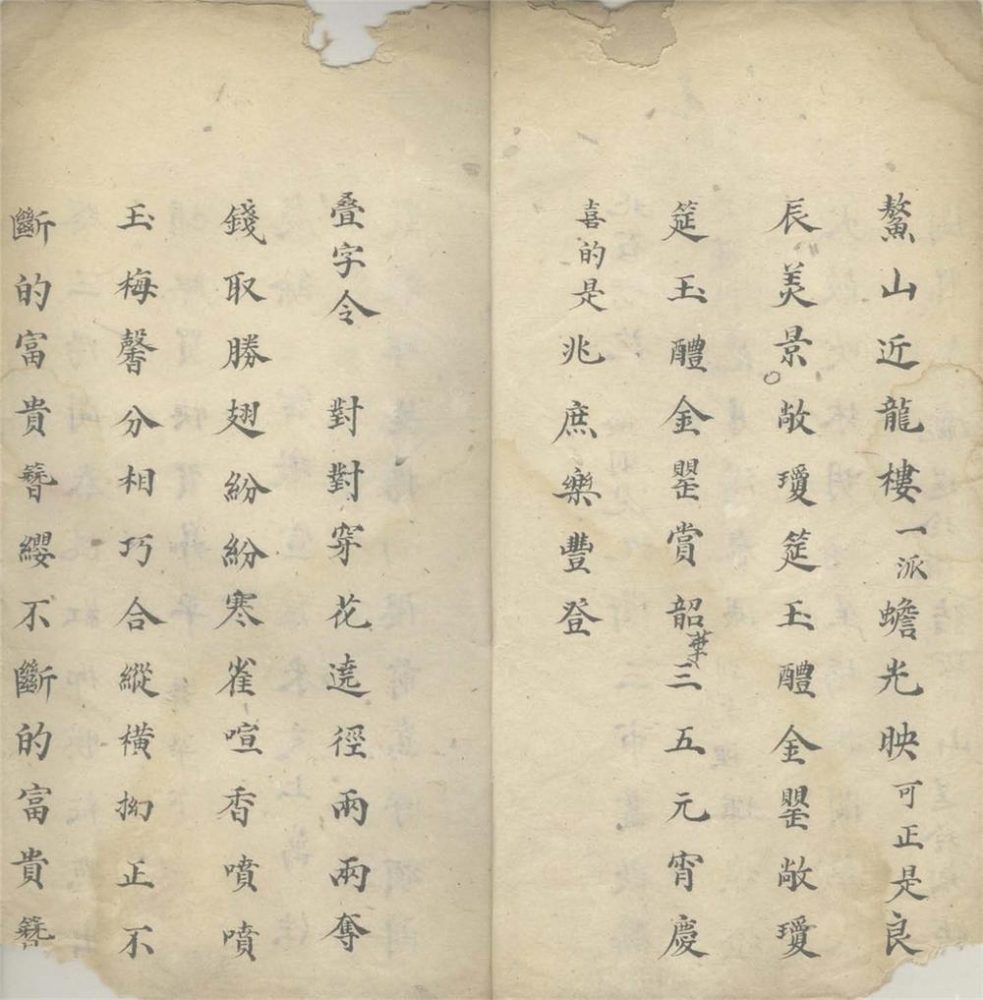 鰲山近龍樓一派蟾光映可正是良
辰美景敞瓊筵玉醴金罌敞瓊
筵玉醴金罌賞韶華三五元宵慶
喜的是兆庶樂豐登
疊字令 對對穿花遶徑兩兩奪
錢取勝翅紛紛寒雀喧香噴噴
玉梅馨分相巧合縱橫拗正不
斷的富貴簪纓不斷的富貴簪